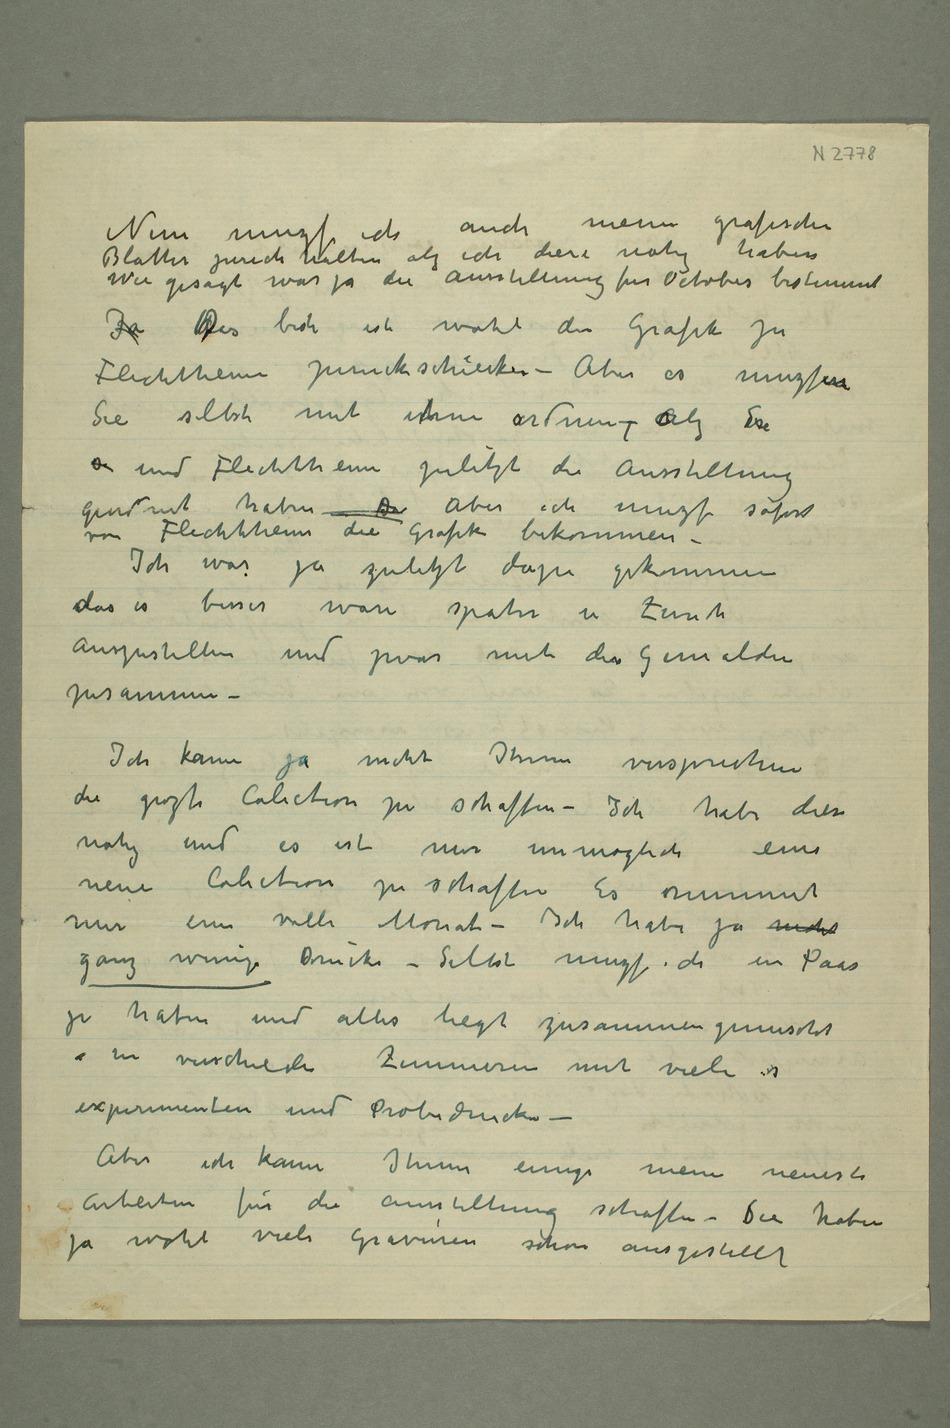 N 2778
Nun muzf ich auch meine grafische
Blatter zurich halten alz ich diese notig haben
Wie gesagt war ja die Ausstellung fur October bestimmt
Ja Das beste ist wohl die Grafik zu
Flechtheim zurückschicken – Aber es muzfen
Sie selbst mit ihme ordnen – alz Sie
und Flechtheim zuletzt die Ausstellung
geordnet haben – Aber ich muzf sofort
von Flechtheim die Grafik bekommen –
Ich war ja zuletzt dazu gekommen
das es besser ware spater in Zürich
auszustellen und zwar mit den Gemalden
zusammen –
Ich kann ja nicht Ihnen versprechen
die gozte Colection zu schaffen – Ich habe diese
notig und es ist mir unmöglich eine
neue Colection zu schaffen Es nimmt
mir eine volle Monat – Ich habe ja nicht
ganz wenige Drucke – Selbst muzf ich ein Paar
zu haben und alles liegt zusammengemischt
in verschiede Zimmeren mit viele
experimenten und Probedrucke –
Aber ich kann Ihnen einige meine neueste
Arbeiten für die Ausstellung schaffen – Sie haben
ja wohl viele Gravüren schon ausgestellt